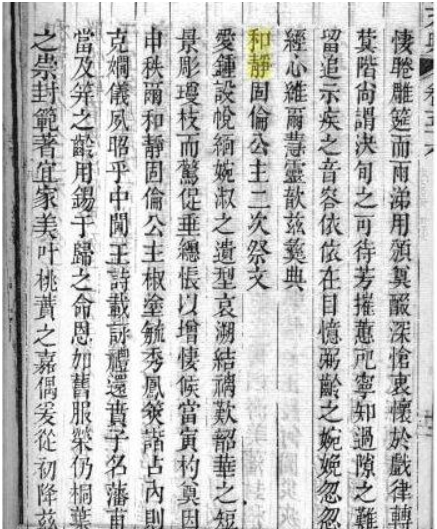 悽睠雕筵而雨涕用頒奠醊深愴衷懷於戲律轉
蓂階尚謂決旬之可待芳摧蕙畹寧知過隙之難
留追示疾之音容依依在目憶弼齡之婉娩忽忽
經心維爾慧靈歆茲奠典
和靜固倫公主二次祭文
愛鍾設帨緬婉淑之遺型哀溯結褵歎韶華之短
景彫瓊枝而驚促垂繐悵以增悽候當寅杓奠因
申秩爾和靜固倫公主椒塗毓秀鳳筴諧占內則
克嫻儀夙昭乎中閫王詩載詠禮還賁于名藩甫
當及笄之齡用錫于歸之命恩加舊服榮仍桐葉
之崇封範著宜家美叶桃蕡之嘉偶爰從初降茲